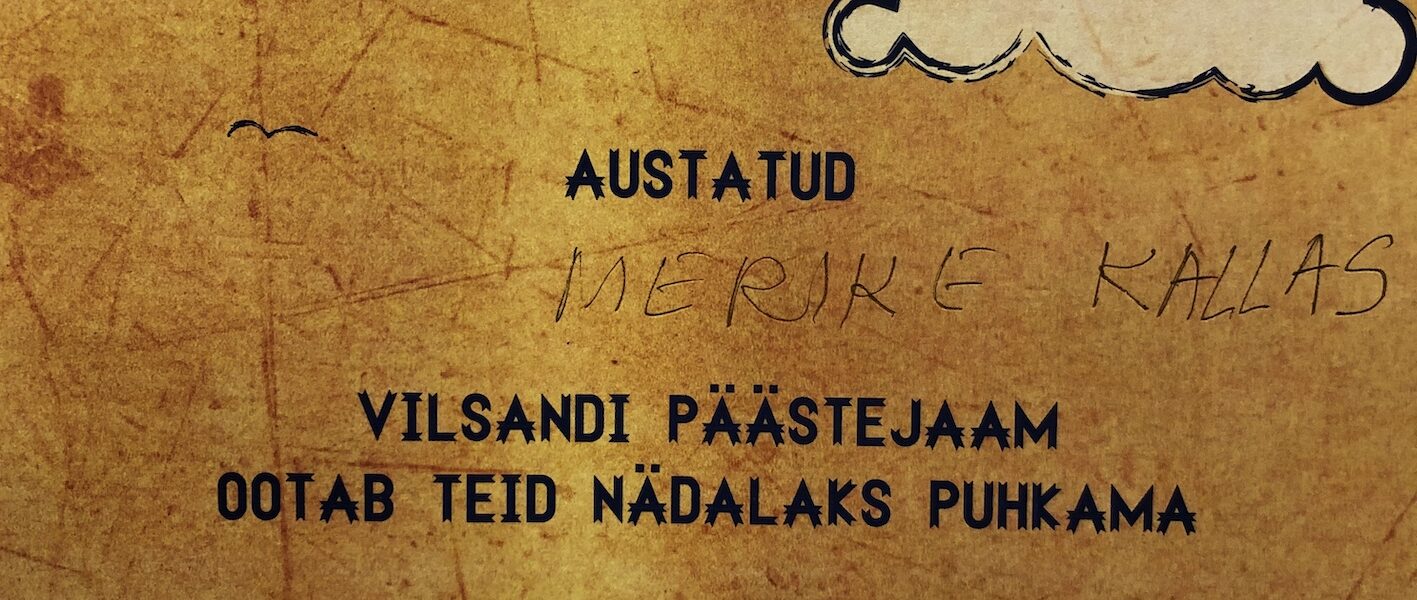 AUSTATUD
MERIKE KALLAS
VILSANDI PÄÄSTEJAAM
OOTAB TEID NÄDALAKS PUHKAMA